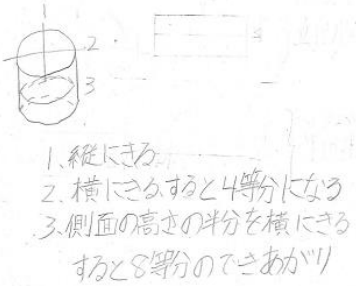 1
2
3
1、縦にきる
2、横にきる、すると4等分になる
3、側面の高さの半分を横にきる
すると8等分のできあがり